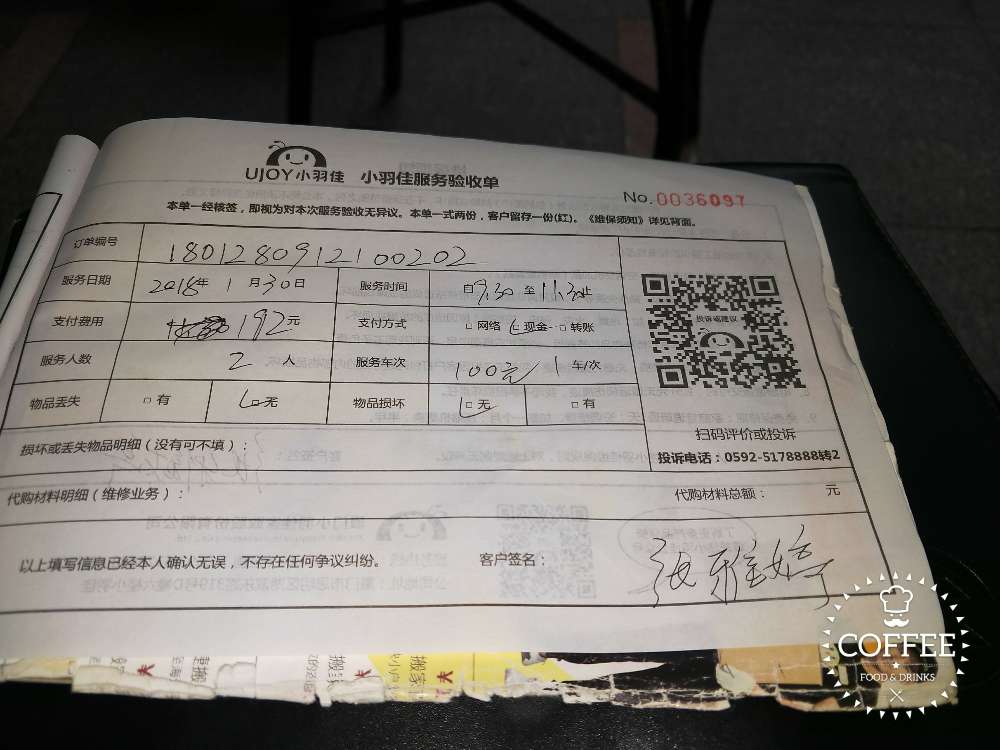 UJOY小羽佳 小羽佳服务验收单
No.0036097
本单一经核签，即视为对本次服务验收无异议。本单一式两份，客户留存一份(红)。《维保须知》详见背面。
订单编号 1801280912100202
服务日期 2018年 1月30日 服务时间 自9:30 至 11:30止
支付费用 192元 支付方式 □网络 □现金 □转账
服务人数 2 人 服务车次 100元/1 车/次
物品丢失 □有 □无 物品损坏 □无 □有
投诉或建议
扫码评价或投诉
投诉电话：0592-5178888转2
损坏或丢失物品明细（没有可不填）：
代购材料明细（维修业务）： 代购材料总额： 元
以上填写信息已经本人确认无误，不存在任何争议纠纷。 客户签名： 张雅婷
COFFEE
FOOD & DRINKS